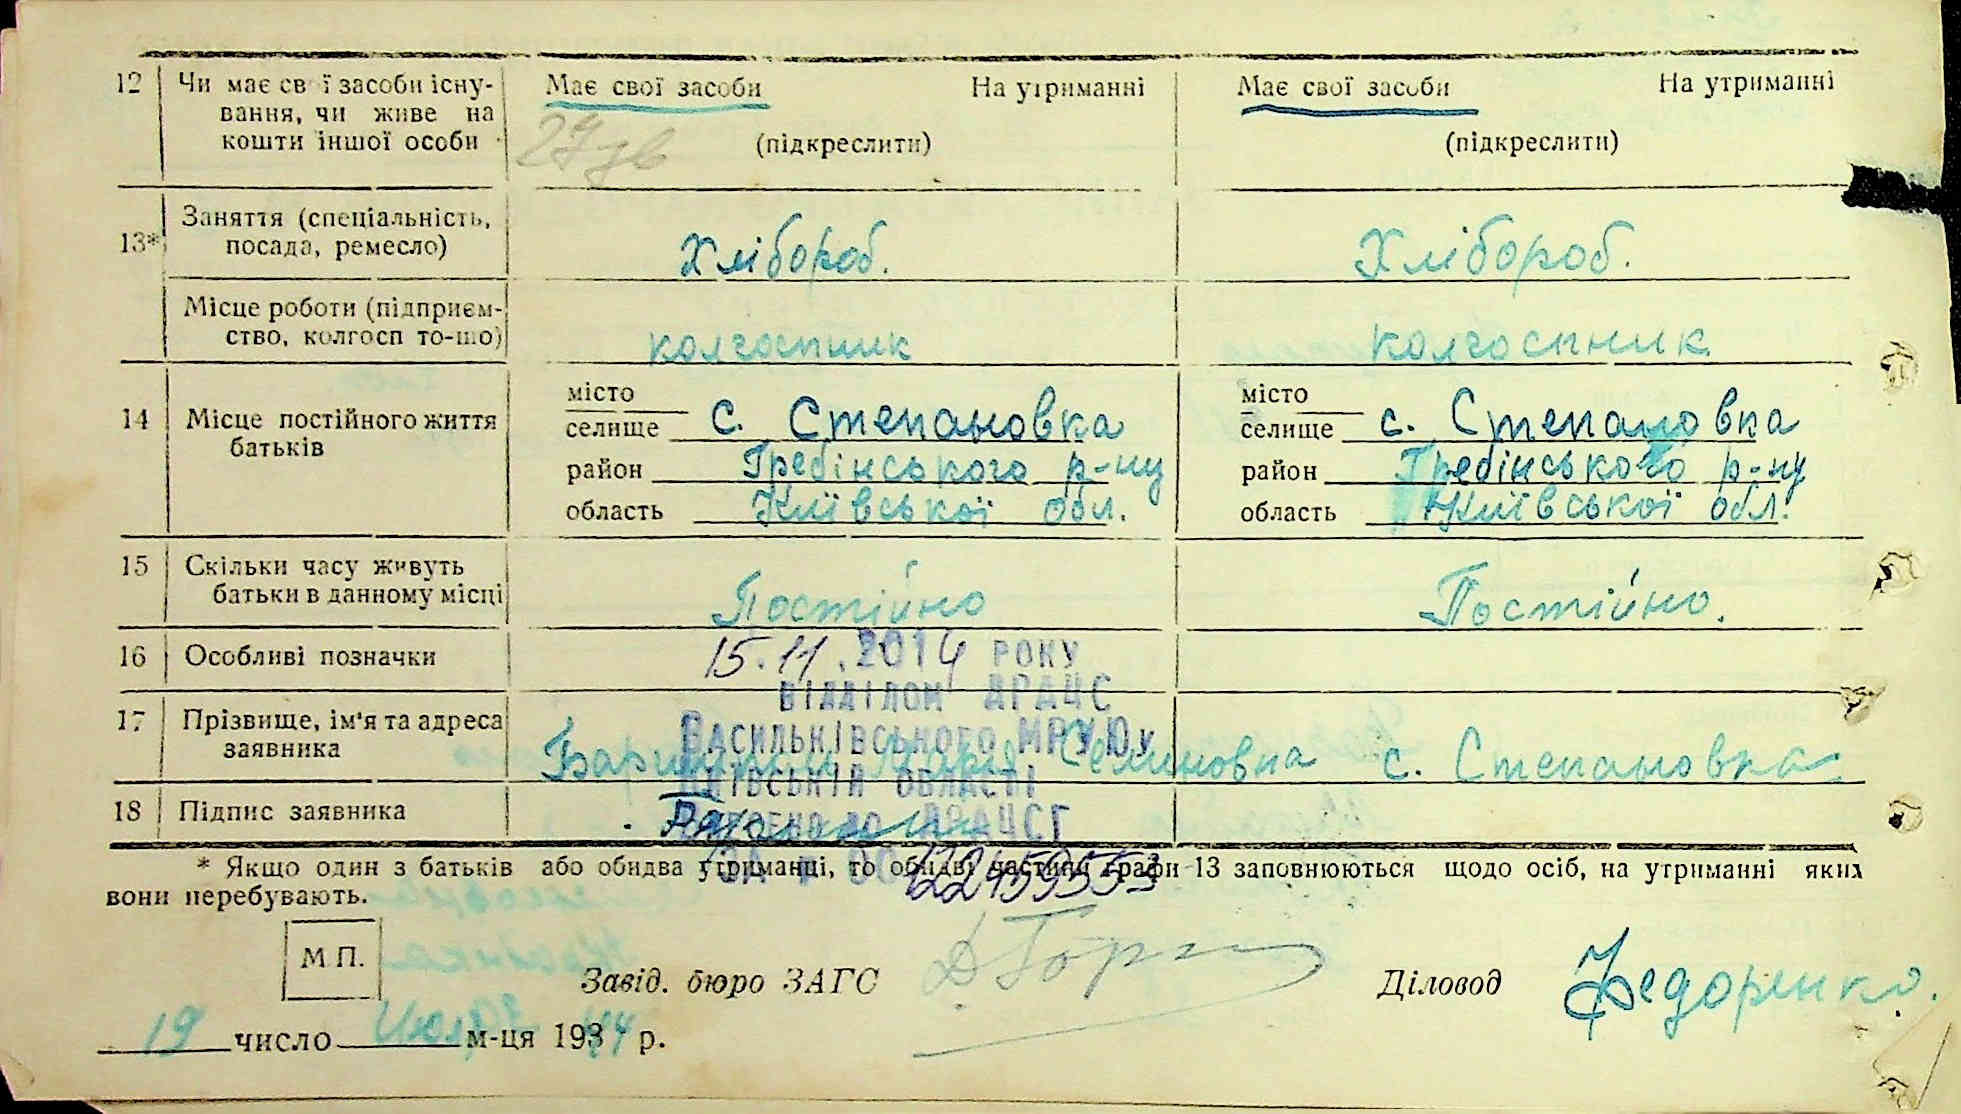 12 Чи має св ї засоби існу- Має свої засоби На утриманні Має свої засоби На утриманні
вання, чи живе на
кошти іншої особи (підкреслити) (підкреслити)
Заняття (спеціальність,
13* посада, ремесло) Хлібороб. Хлібороб.
Місце роботи (підприєм-
ство, колгосп то-що) колгоспник колгоспник
місто місто
14 Місце постійного життя селище с. Степановка селище с. Степановка
батьків район Гребінського р-ну район Гребінського р-ну
область Київської обл. область Київської обл.
15 Скільки часу живуть
батьки в данному місці Постійно Постійно.
16 Особливі позначки 15.11.2014 РОКУ
ВІДДІЛОМ ДРАЦС
17 Прізвище, ім'я та адреса ВАСИЛЬКІВСЬКОГО МРУЮ
заявника Марія Семиновна с. Степановка
КИЇВСЬКІЙ ОБЛАСТІ
18 Підпис заявника
ДРАЦСГ
* Якщо один з батьків або обидва утриманці, то обидві частини графи 13 заповнюються щодо осіб, на утриманні яких
вони перебувають.
М.П.
Завід. бюро ЗАГС Діловод Федоренко.
19 число Июля м-ця 1944 р.